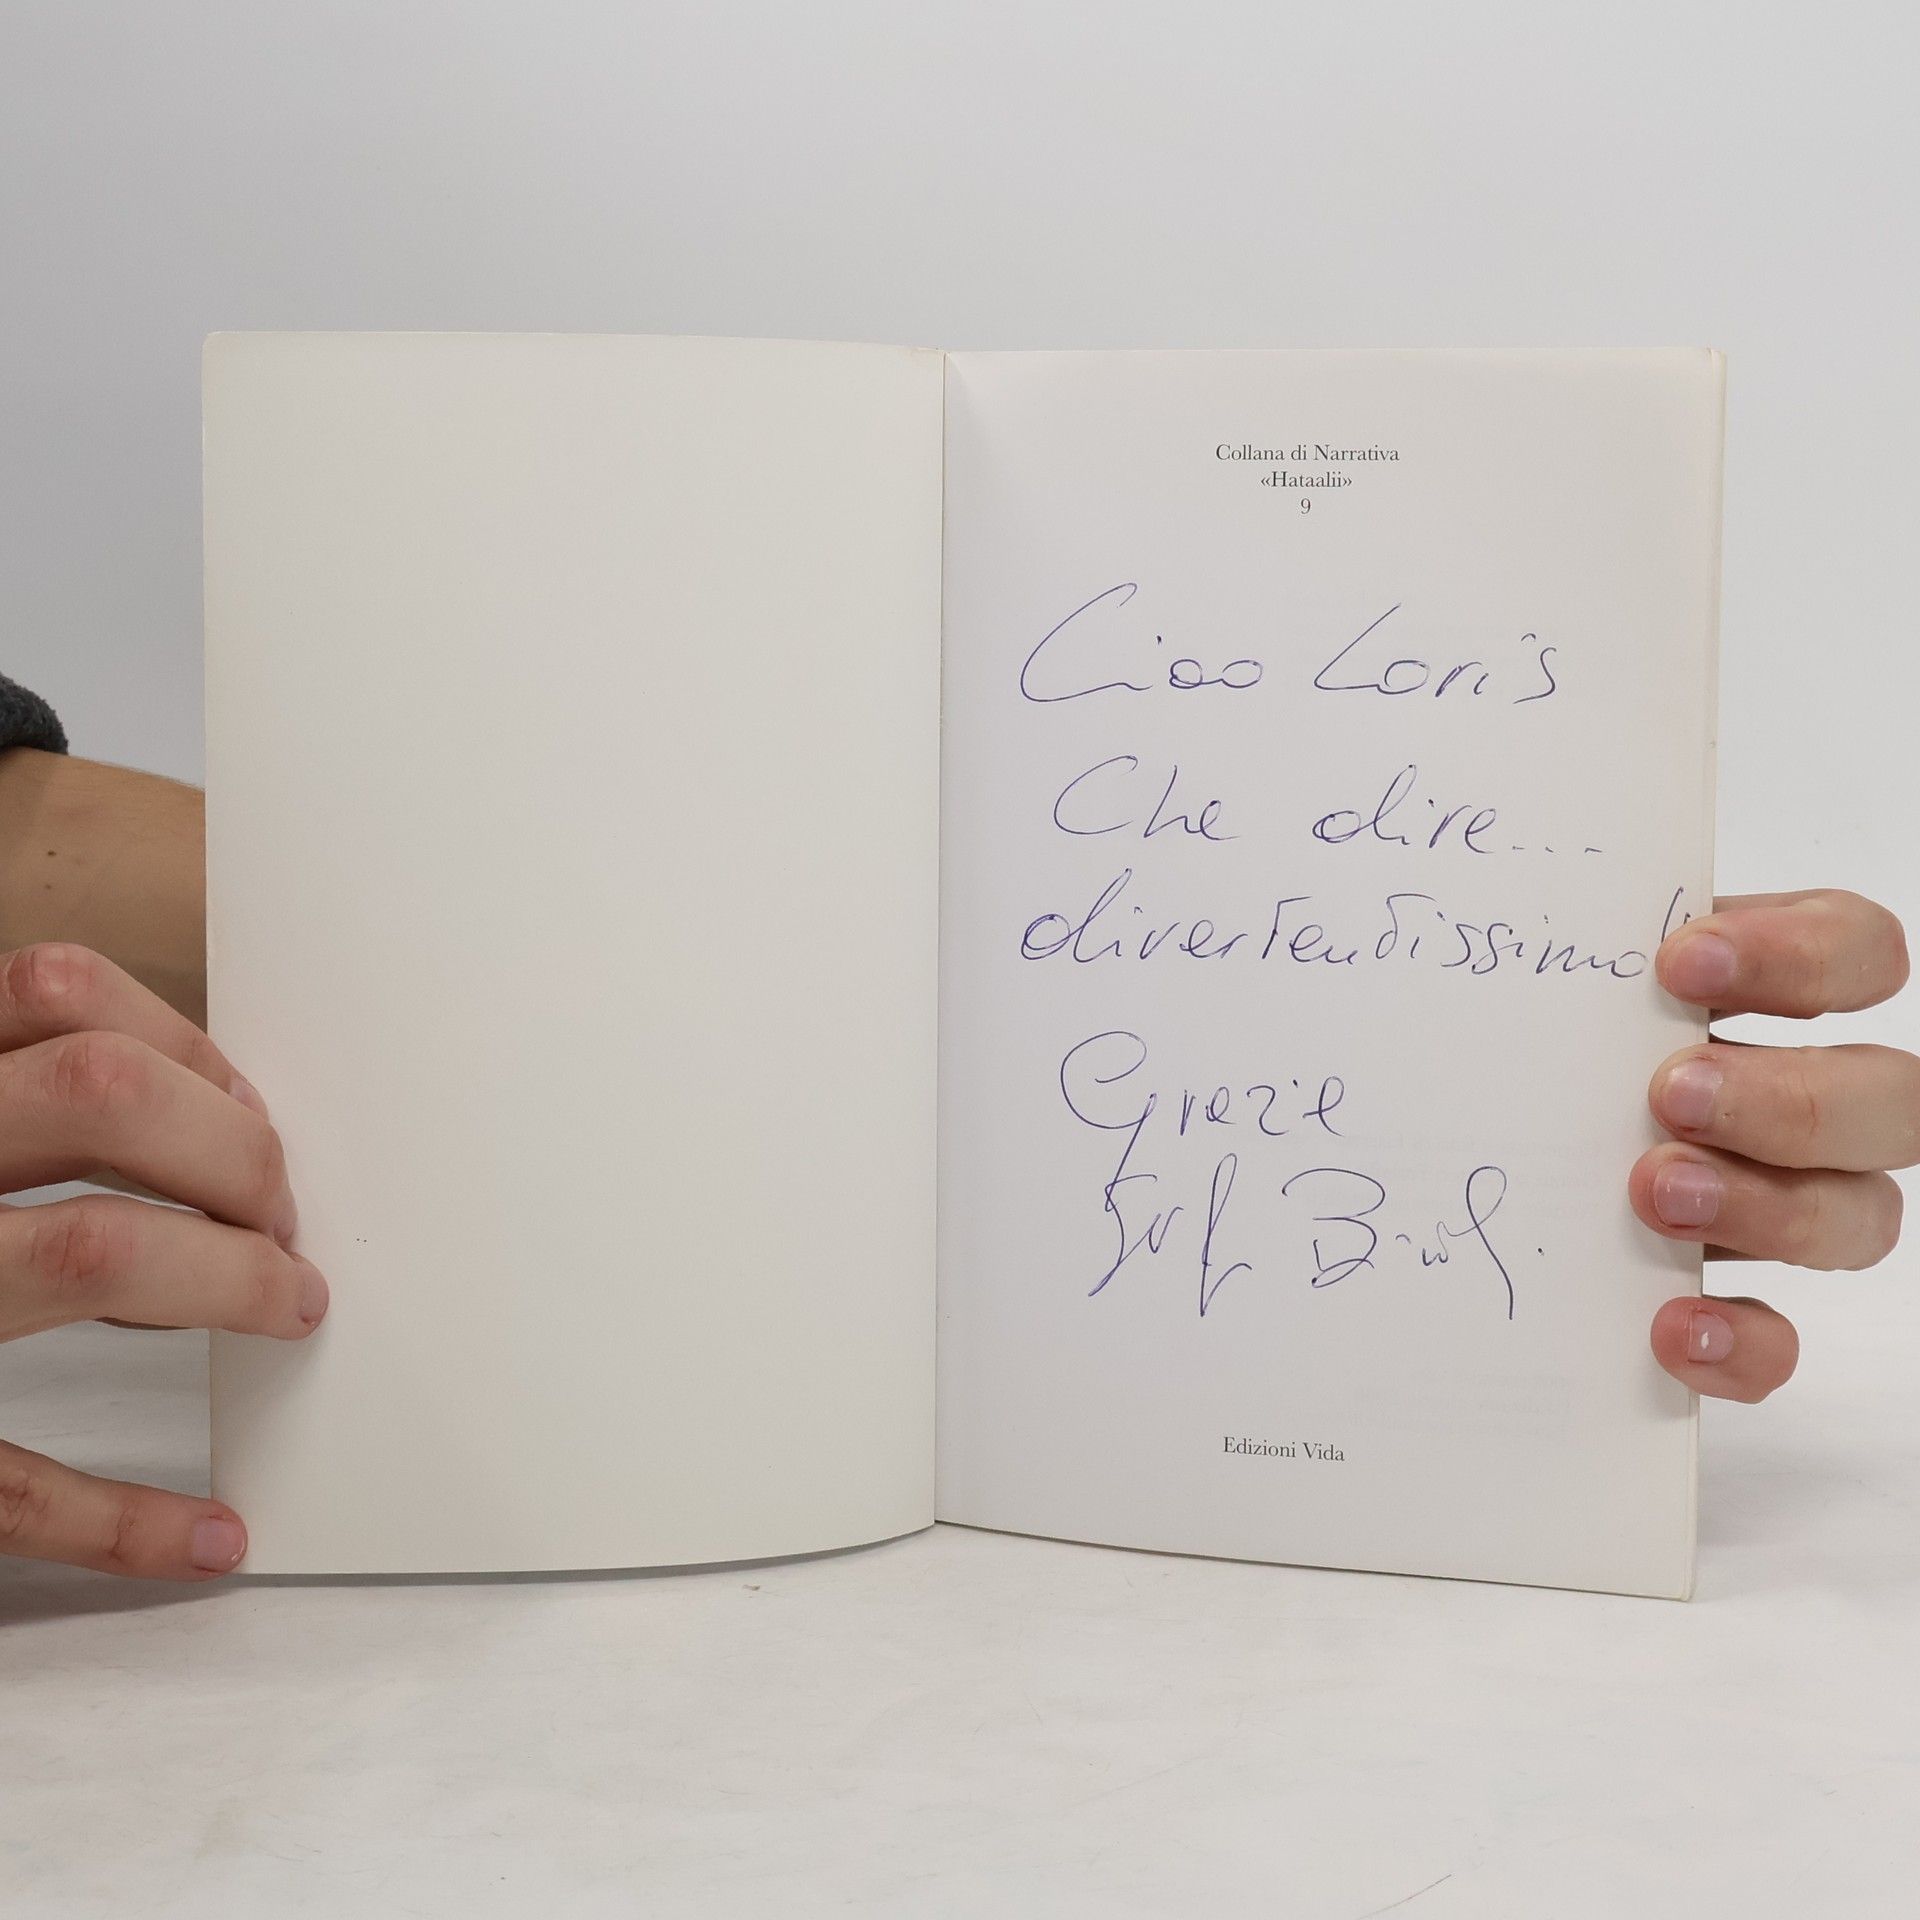 Collana di Narrativa
«Hataalii»
9
Ciao Loris
Che dire...
divertentissimo!
Grazie
Edizioni Vida